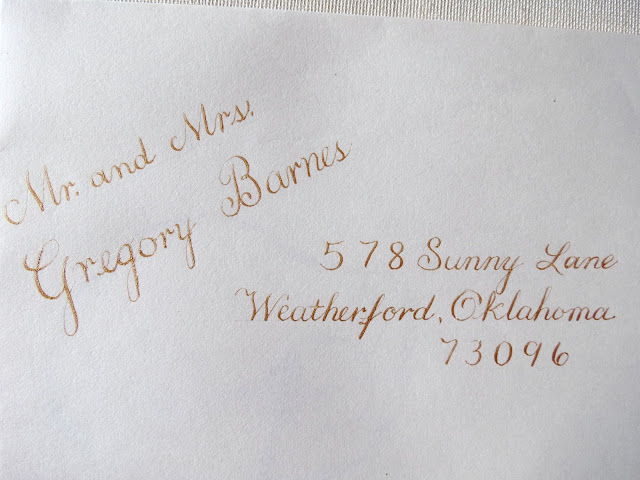 Mr. and Mrs.
Gregory Barnes
578 Sunny Lane
Weatherford, Oklahoma
73096